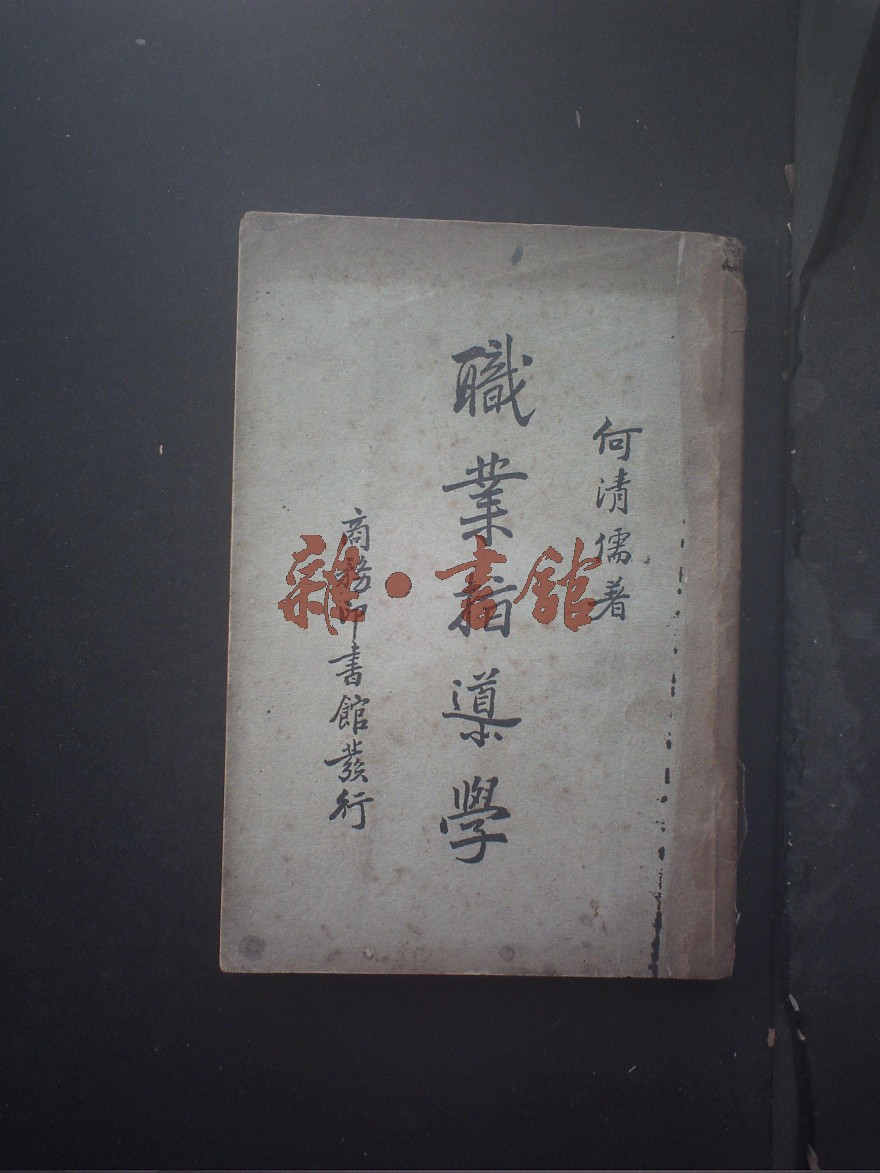 何清儒著
職業指導學
商務印書館發行
雜·書館